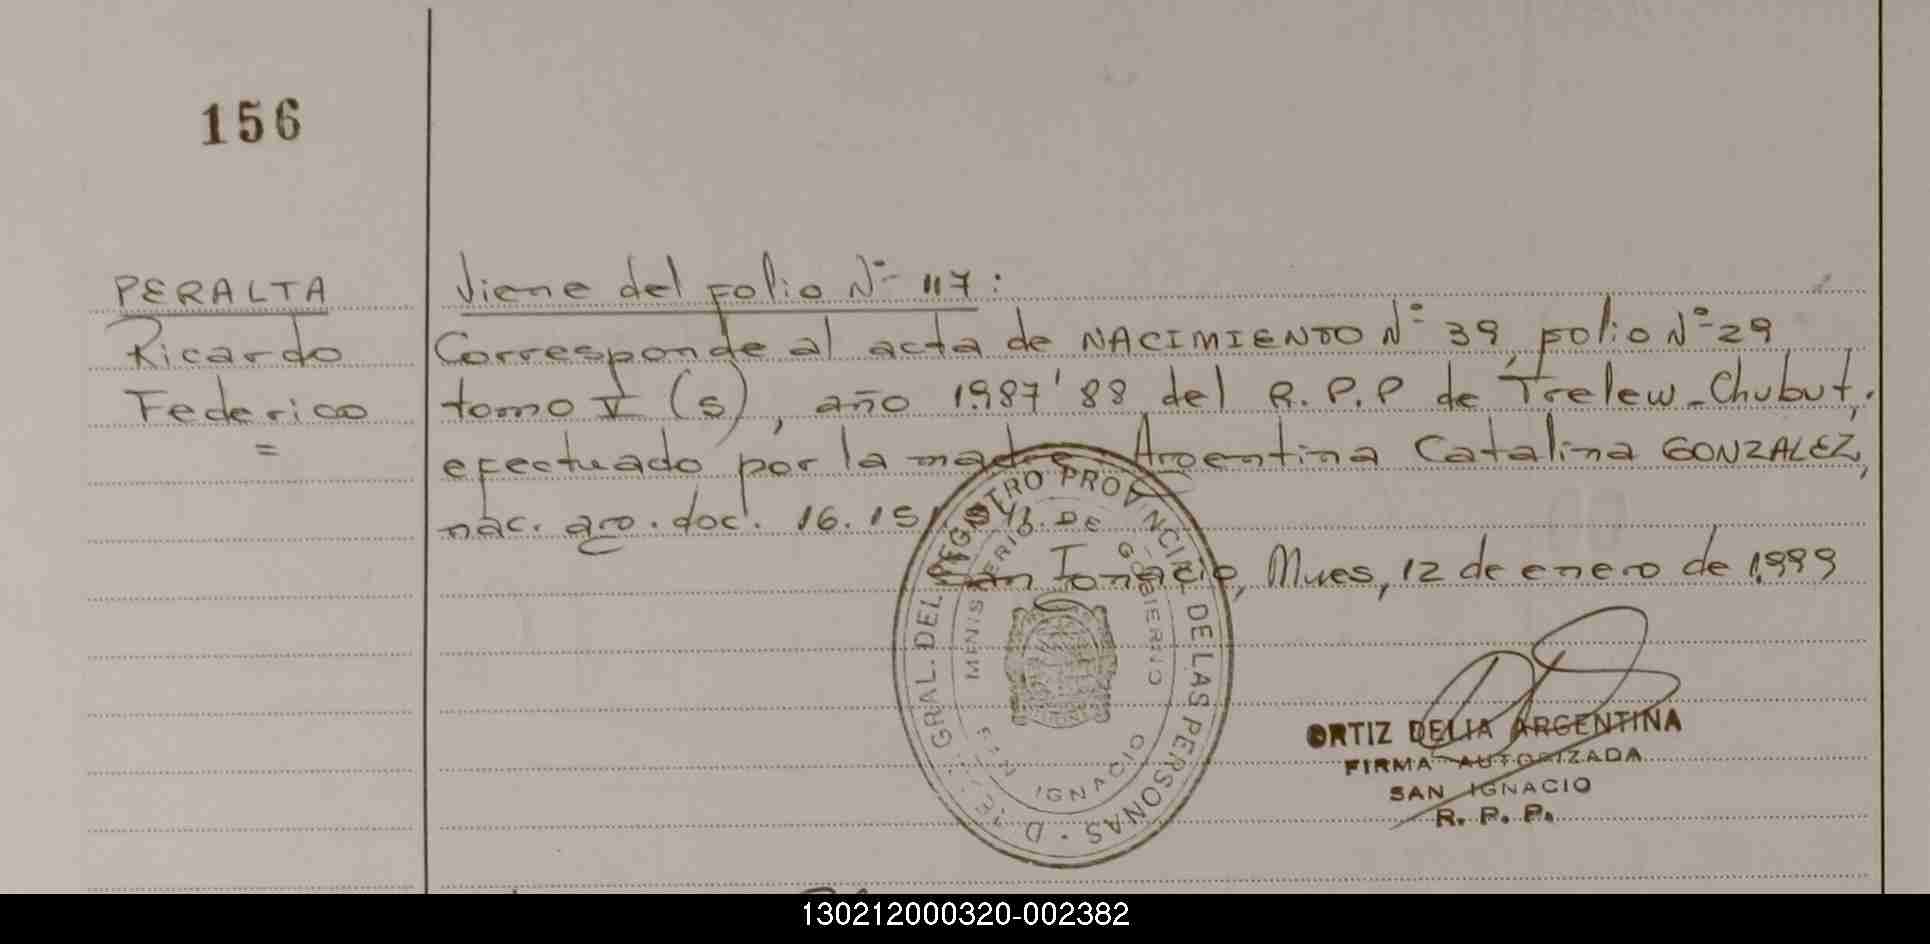 156
PERALTA
Ricardo
Federico
=
Viene del folio Nº 117:
Corresponde al acta de NACIMIENTO Nº 39, folio Nº 29
tomo V (s), año 1987'88 del R.P.P de Trelew-Chubut,
efectuado por la madre Argentina Catalina GONZALEZ,
nac. arg. doc. 16.15
San Ignacio, Mnes, 12 de enero de 1999
GRAL. DEL REGISTRO PROVINCIAL DE LAS PERSONAS
MINISTERIO DE GOBIERNO
SAN IGNACIO
ORTIZ DELIA ARGENTINA
FIRMA AUTORIZADA
SAN IGNACIO
R. P. P.
130212000320-002382